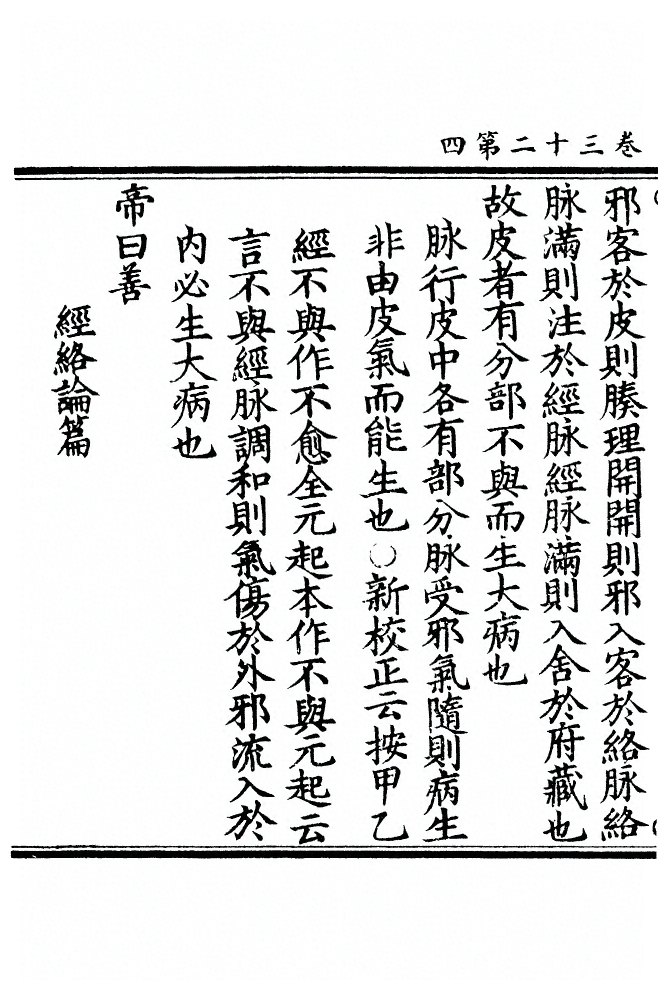 卷三十二第四
邪客於皮則腠理開開則邪入客於絡脉絡
脉滿則注於經脉經脉滿則入舍於府藏也
故皮者有分部不與而生大病也
脉行皮中各有部分脉受邪氣隨則病生
非由皮氣而能生也〇新校正云按甲乙
經不與作不愈全元起本作不與元起云
言不與經脉調和則氣傷於外邪流入於
内必生大病也
帝曰善
經絡論篇